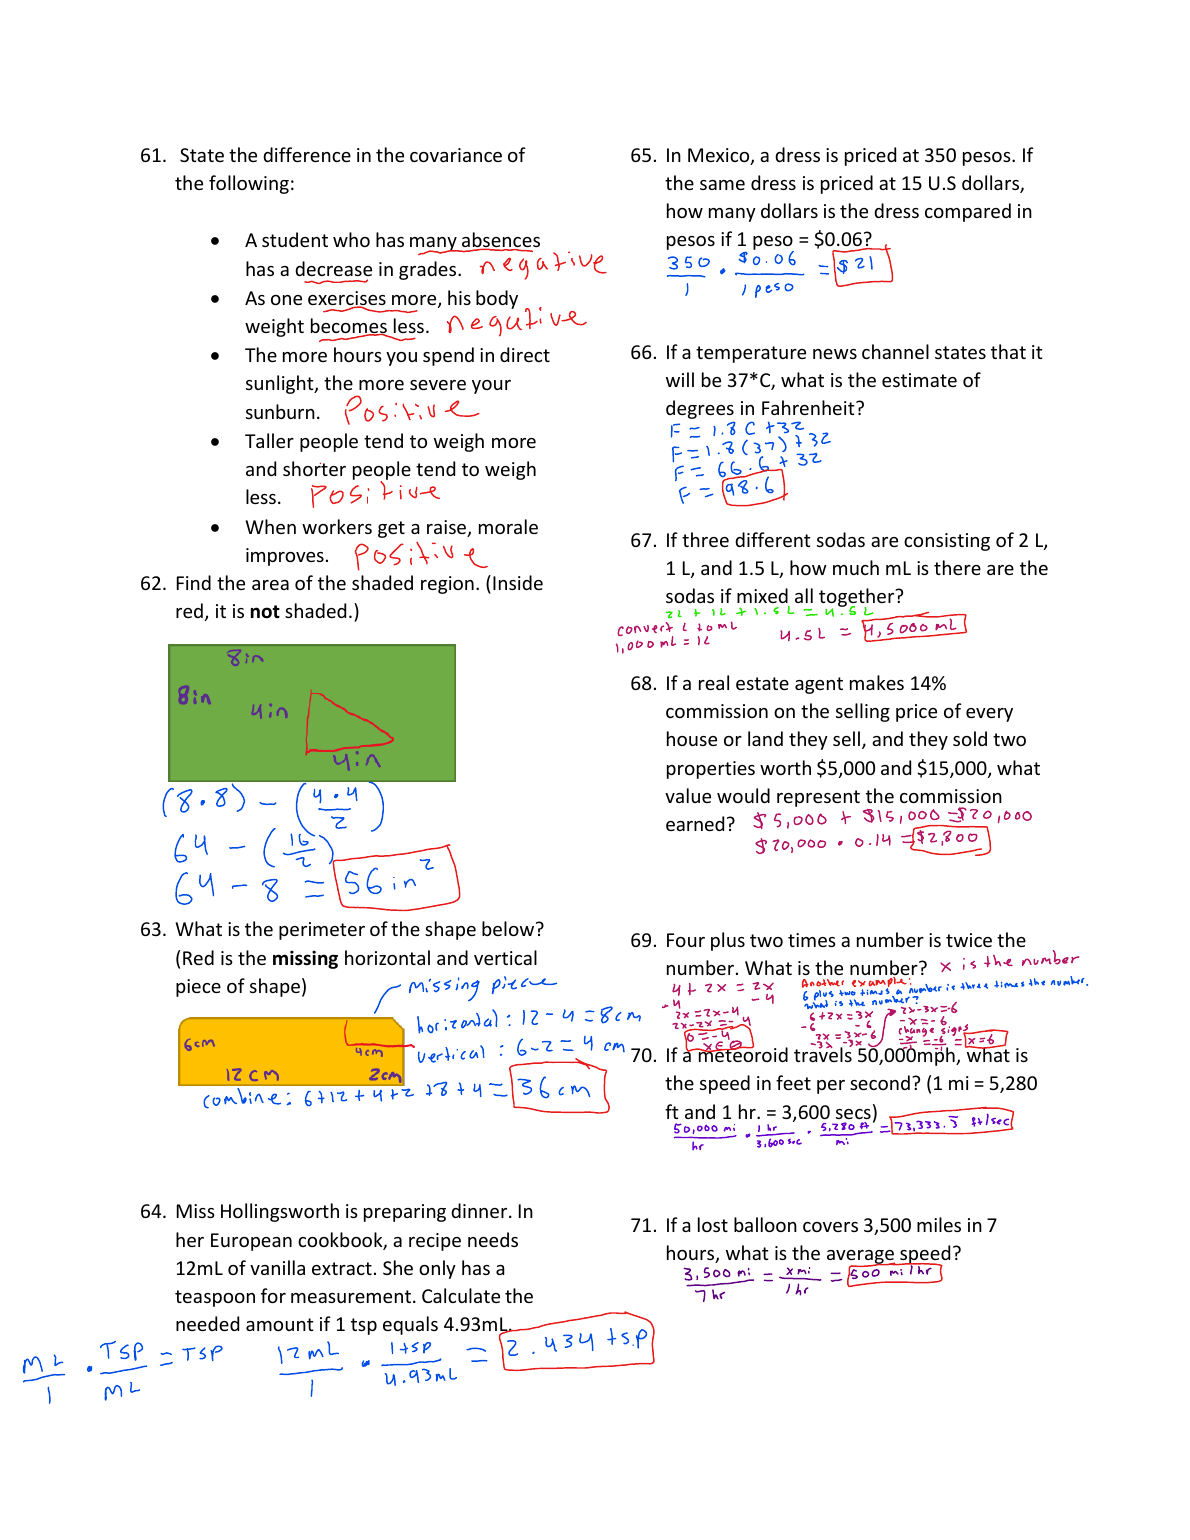 61. State the difference in the covariance of
the following:
• A student who has many absences
has a decrease in grades. negative
• As one exercises more, his body
weight becomes less. negative
• The more hours you spend in direct
sunlight, the more severe your
sunburn. Positive
• Taller people tend to weigh more
and shorter people tend to weigh
less. Positive
• When workers get a raise, morale
improves. Positive
62. Find the area of the shaded region. (Inside
red, it is not shaded.)
8in
8in
4in
4in
(8·8) - (4·4/2)
64 - (16/2)
64 - 8 = 56in²
63. What is the perimeter of the shape below?
(Red is the missing horizontal and vertical
piece of shape)
missing piece
horizontal: 12-4=8cm
6cm
4cm
vertical: 6-2=4 cm
12cm
2cm
combine: 6+12+4+2+8+4=36cm
64. Miss Hollingsworth is preparing dinner. In
her European cookbook, a recipe needs
12mL of vanilla extract. She only has a
teaspoon for measurement. Calculate the
needed amount if 1 tsp equals 4.93mL.
ML/1 · TSP/ML = TSP
12mL/1 · 1tsp/4.93mL = 2.434 tsp
65. In Mexico, a dress is priced at 350 pesos. If
the same dress is priced at 15 U.S dollars,
how many dollars is the dress compared in
pesos if 1 peso = $0.06?
350/1 · $0.06/1 peso = $21
66. If a temperature news channel states that it
will be 37*C, what is the estimate of
degrees in Fahrenheit?
F = 1.8C+32
F=1.8(37)+32
F = 66.6+32
F = 98.6
67. If three different sodas are consisting of 2 L,
1 L, and 1.5 L, how much mL is there are the
sodas if mixed all together?
2L + 1L + 1.5L = 4.5L
convert L to mL
1,000mL = 1L
4.5L = 4,5000mL
68. If a real estate agent makes 14%
commission on the selling price of every
house or land they sell, and they sold two
properties worth $5,000 and $15,000, what
value would represent the commission
earned? $5,000 + $15,000=$20,000
$20,000 · 0.14=$2,800
69. Four plus two times a number is twice the
number. What is the number? x is the number
4+2x=2x
-4 -4
2x=2x-4
2x-2x=-4
0=-4
x∈∅
Another example:
6 plus two times a number is three times the number.
What is the number?
6+2x=3x
-6 -6
2x=3x-6
-3x -3x
2x-3x=-6
-x=-6
change signs
-x/-1=-6/-1=x=6
70. If a meteoroid travels 50,000mph, what is
the speed in feet per second? (1 mi = 5,280
ft and 1 hr. = 3,600 secs)
50,000 mi/hr · 1 hr/3,600 sec · 5,280 ft/mi = 73,333.3̅ ft/sec
71. If a lost balloon covers 3,500 miles in 7
hours, what is the average speed?
3,500 mi/7hr = x mi/1hr = 500 mi/hr